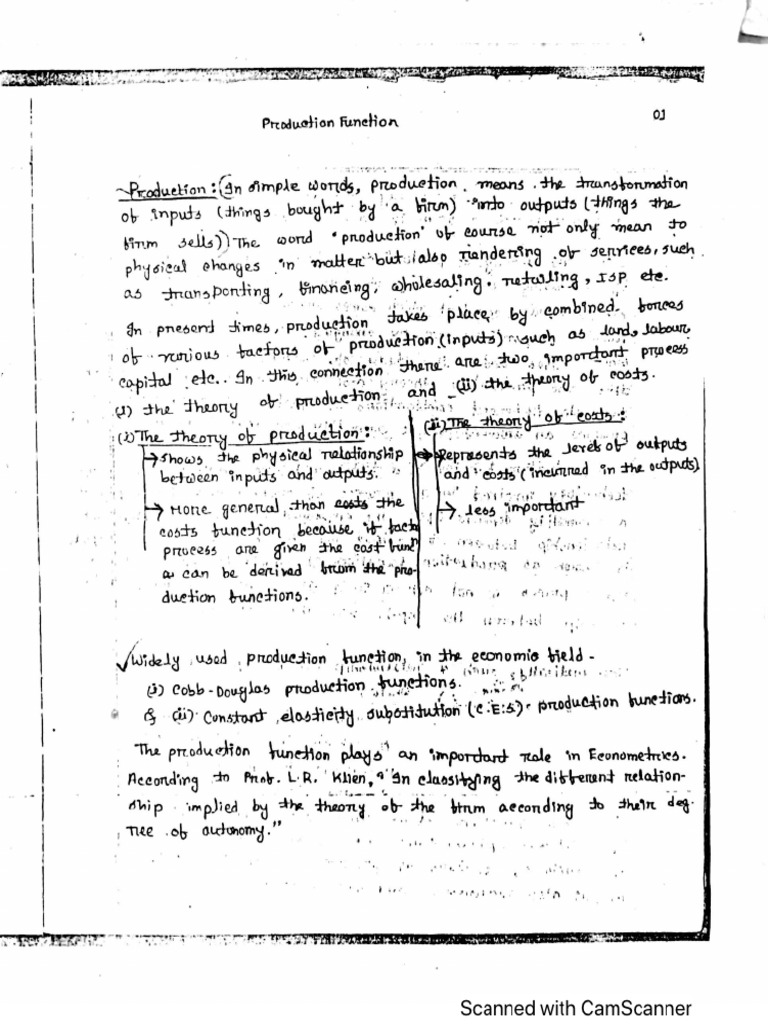 Production Function
01
Production: (In simple words, production means the transformation
of inputs (things bought by a firm) into outputs (things the
firm sells)) The word "production" of course not only mean to
physical changes in matter but also rendering of services, such
as transporting, financing, wholesaling, retailing, ISP etc.
In present times, production takes place by combined forces
of various factors of production (inputs) such as land, labour
capital etc.. In this connection there are two important process
(i) the theory of production and (ii) the theory of costs.
(i) The theory of production:
→ shows the physical relationship
between inputs and outputs.
→ More general than costs the
costs function because if fact
process are given the cost func
as can be derived from the pro-
duction functions.
(ii) The theory of costs:
→ Represents the levels of outputs
and costs (incurred in the outputs)
→ less important
✓ Widely used production function, in the economic field -
(i) Cobb-Douglas production functions.
& (ii) Constant elasticity substitution (C.E.S). production functions.
The production function plays an important role in Econometrics.
According to Prof. L.R. Klien, "In classifying the different relation-
ship implied by the theory of the firm according to their deg-
ree of autonomy."
Scanned with CamScanner